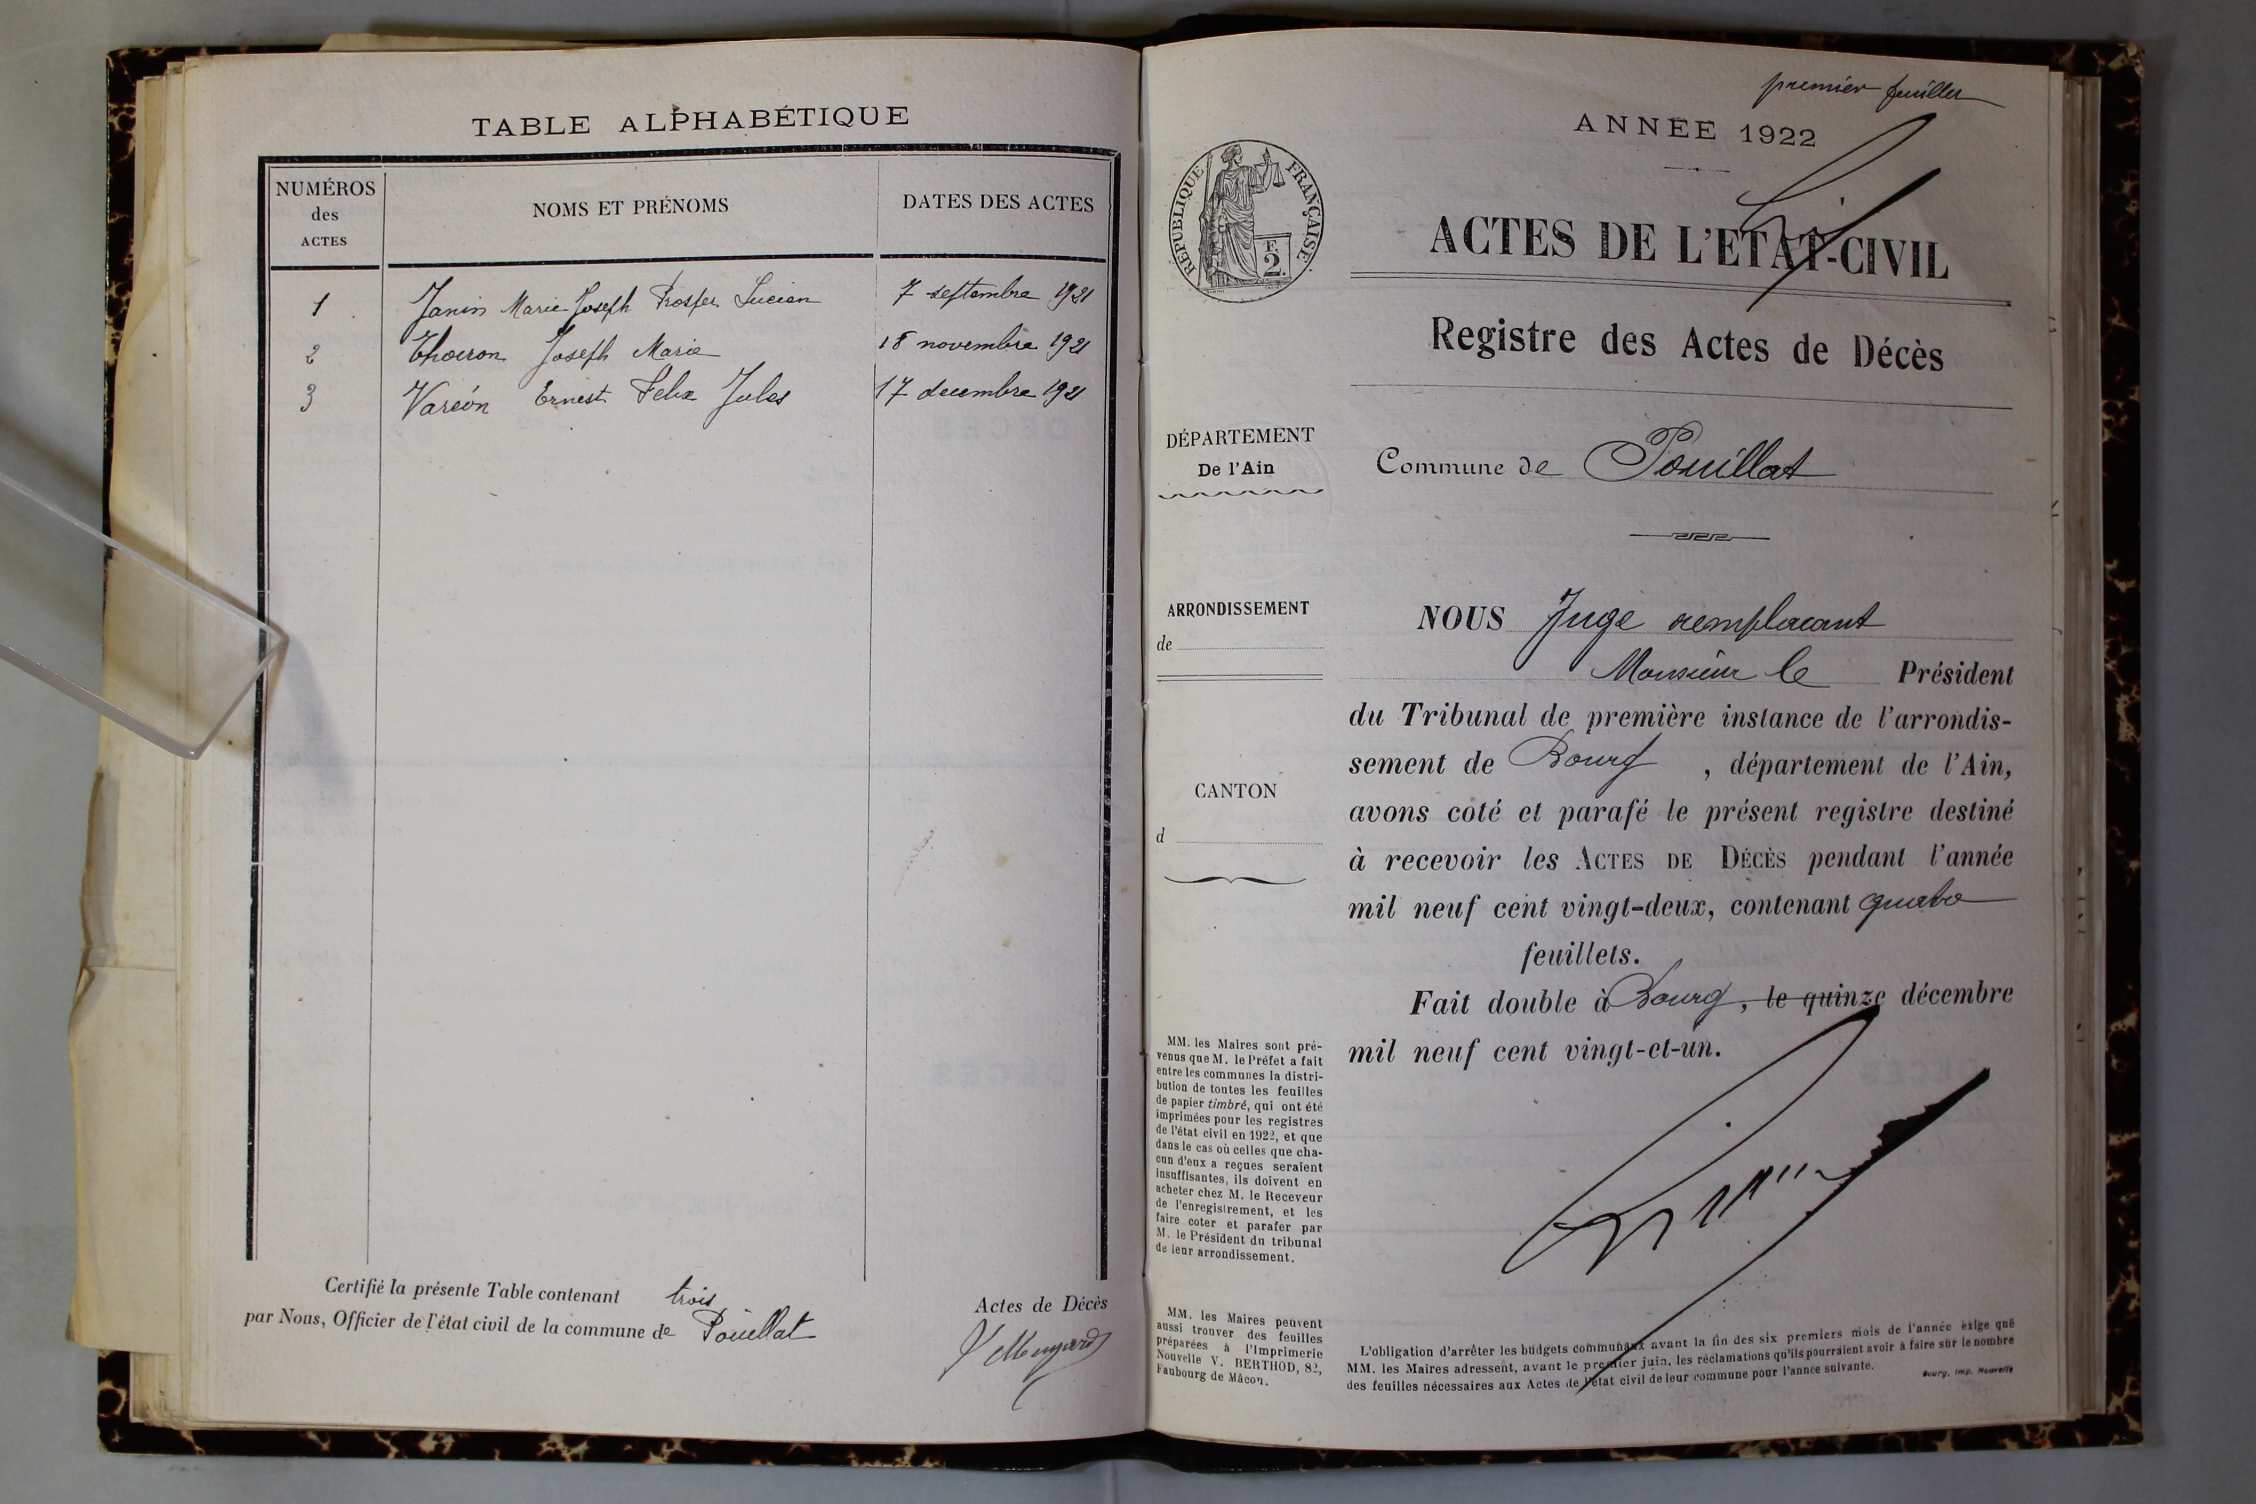 TABLE ALPHABÉTIQUE
NUMÉROS
des
ACTES
NOMS ET PRÉNOMS
DATES DES ACTES
1 Janin Marie Joseph Prosper Lucien 7 septembre 1921
2 Thoiron Joseph Marie 18 novembre 1921
3 Varéon Ernest Felix Jules 17 decembre 1921
Certifié la présente Table contenant trois Actes de Décès
par Nous, Officier de l'état civil de la commune de Pouillat
premier feuillet
ANNÉE 1922
RÉPUBLIQUE FRANÇAISE
F.
2.
ACTES DE L'ETAT-CIVIL
Registre des Actes de Décès
DÉPARTEMENT
De l'Ain
Commune de Pouillat
ARRONDISSEMENT
de
CANTON
d
NOUS Juge remplacant
Monsieur le Président
du Tribunal de première instance de l'arrondis-
sement de Bourg , département de l'Ain,
avons coté et parafé le présent registre destiné
à recevoir les ACTES DE DÉCÈS pendant l'année
mil neuf cent vingt-deux, contenant quatre
feuillets.
Fait double à Bourg, le quinze décembre
mil neuf cent vingt-et-un.
MM. les Maires sont pré-
venus que M. le Préfet a fait
entre les communes la distri-
bution de toutes les feuilles
de papier timbré, qui ont été
imprimées pour les registres
de l'état civil en 1922, et que
dans le cas où celles que cha-
cun d'eux a reçues seraient
insuffisantes, ils doivent en
acheter chez M. le Receveur
de l'enregistrement, et les
faire coter et parafer par
M. le Président du tribunal
de leur arrondissement.
MM. les Maires peuvent
aussi trouver des feuilles
préparées à l'Imprimerie
Nouvelle V. BERTHOD, 82,
Faubourg de Mâcon.
L'obligation d'arrêter les budgets communaux avant la fin des six premiers mois de l'année exige que
MM. les Maires adressent, avant le premier juin, les réclamations qu'ils pourraient avoir à faire sur le nombre
des feuilles nécessaires aux Actes de l'état civil de leur commune pour l'année suivante.
Bourg, Imp. Nouvelle